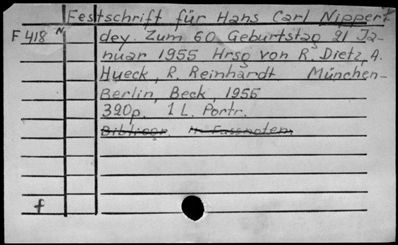 Festschrift für Hans Carl Nipperdey
F 418 N dey. Zum 60. Geburtstag 21 Ja-
nuar 1955 Hrsg von R. Dietz, A.
Hueck, R. Reinhardt München-
Berlin, Beck, 1955
390p. 1 L. Portr.
Bibliogr. in Fussnoten
f